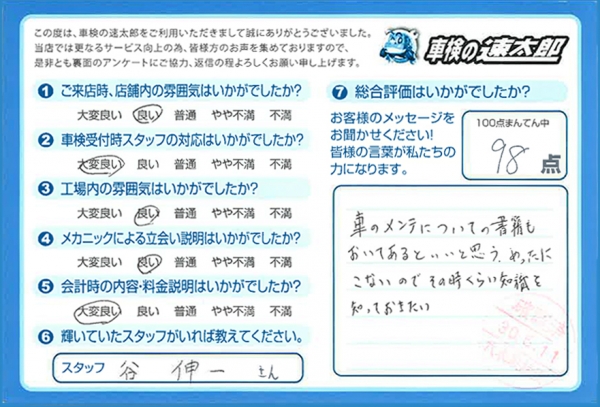 この度は、車検の速太郎をご利用いただきまして誠にありがとうございました。
当店では更なるサービス向上の為、皆様方のお声を集めておりますので、
是非とも裏面のアンケートにご協力、返信の程よろしくお願い申し上げます。
車検の速太郎
1 ご来店時、店舗内の雰囲気はいかがでしたか?
大変良い 良い 普通 やや不満 不満
2 車検受付時スタッフの対応はいかがでしたか?
大変良い 良い 普通 やや不満 不満
3 工場内の雰囲気はいかがでしたか?
大変良い 良い 普通 やや不満 不満
4 メカニックによる立会い説明はいかがでしたか?
大変良い 良い 普通 やや不満 不満
5 会計時の内容・料金説明はいかがでしたか?
大変良い 良い 普通 やや不満 不満
6 輝いていたスタッフがいれば教えてください。
スタッフ 谷 伸一 さん
7 総合評価はいかがでしたか?
お客様のメッセージを
お聞かせください!
皆様の言葉が私たちの
力になります。
100点まんてん中
98 点
車のメンテについての書籍も
おいてあるといいと思う。めったに
こないのでその時くらい知識を
知っておきたい